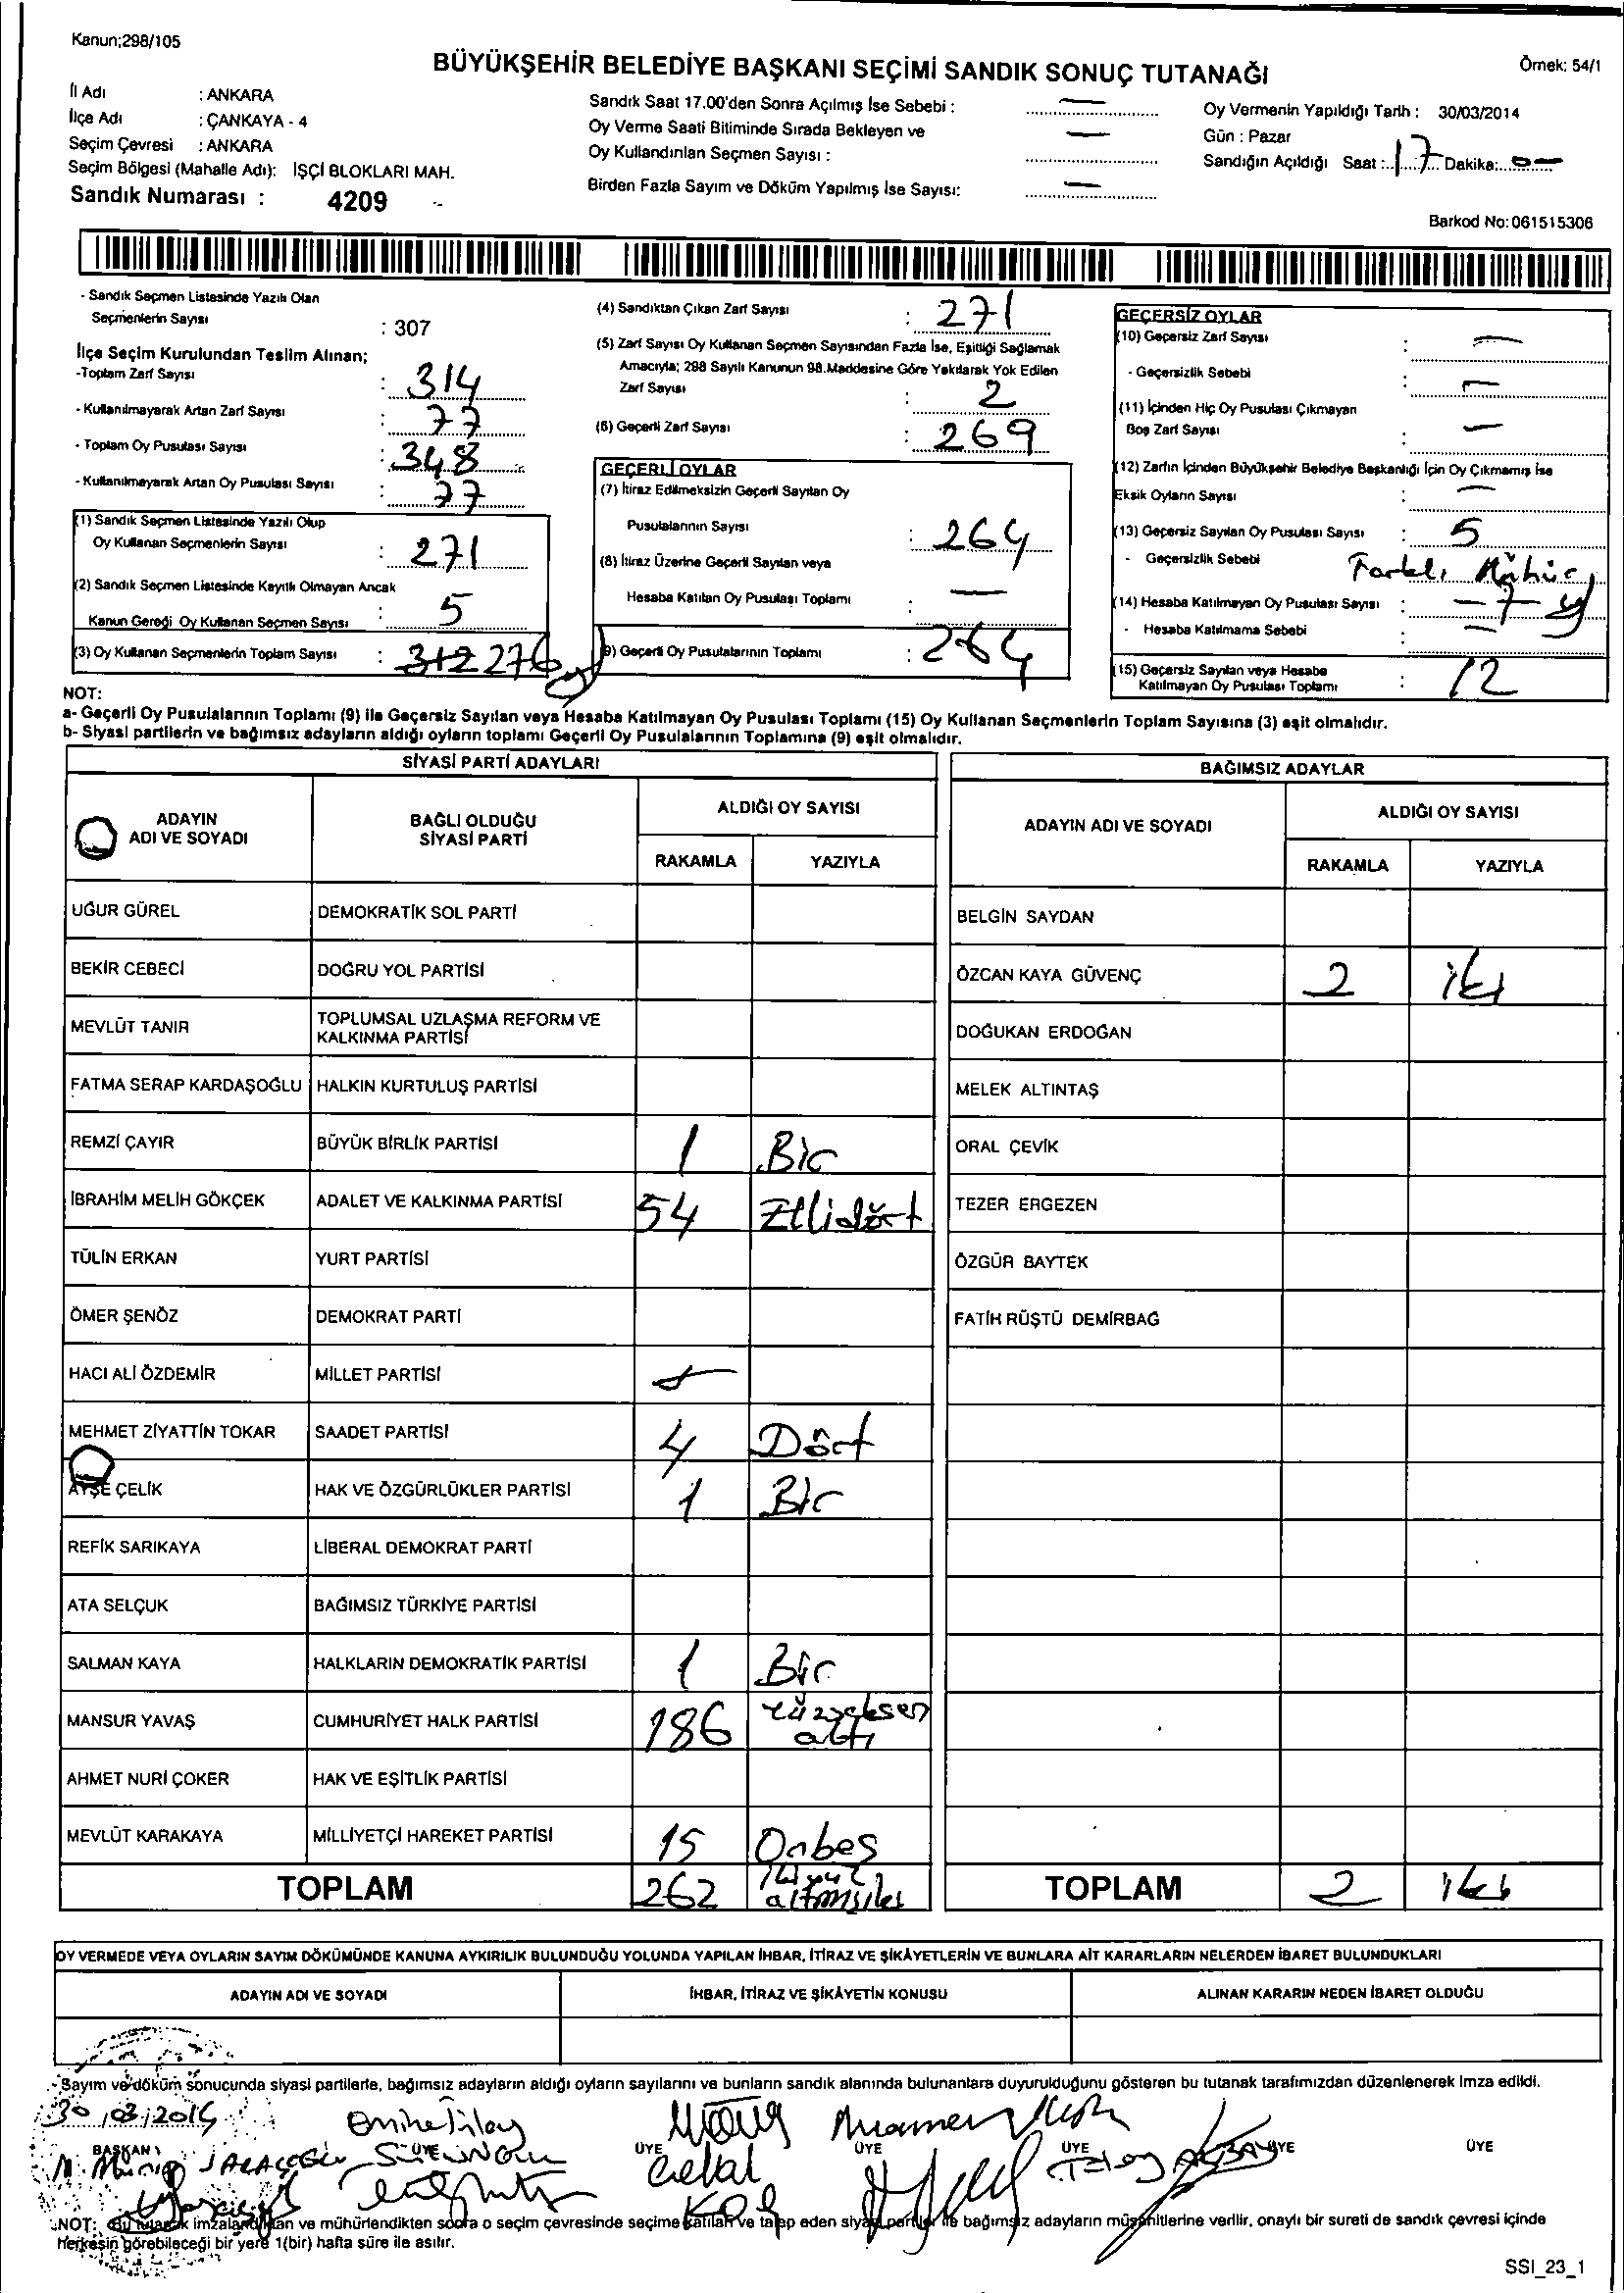 Kanun;298/105
BÜYÜKŞEHİR BELEDİYE BAŞKANI SEÇİMİ SANDIK SONUÇ TUTANAĞI
Örnek: 54/1
İl Adı : ANKARA
İlçe Adı : ÇANKAYA - 4
Seçim Çevresi : ANKARA
Seçim Bölgesi (Mahalle Adı): İŞÇİ BLOKLARI MAH.
Sandık Numarası : 4209
Sandık Saat 17.00'den Sonra Açılmış İse Sebebi : —
Oy Verme Saati Bitiminde Sırada Bekleyen ve —
Oy Kullandırılan Seçmen Sayısı :
Birden Fazla Sayım ve Döküm Yapılmış İse Sayısı: —
Oy Vermenin Yapıldığı Tarih : 30/03/2014
Gün : Pazar
Sandığın Açıldığı Saat : 17 Dakika: 0—
Barkod No: 061515306
- Sandık Seçmen Listesinde Yazılı Olan
Seçmenlerin Sayısı : 307
İlçe Seçim Kurulundan Teslim Alınan;
-Toplam Zarf Sayısı : 314
- Kullanılmayarak Artan Zarf Sayısı : 77
- Toplam Oy Pusulası Sayısı : 348
- Kullanılmayarak Artan Oy Pusulası Sayısı : 77
(1) Sandık Seçmen Listesinde Yazılı Olup
Oy Kullanan Seçmenlerin Sayısı : 271
(2) Sandık Seçmen Listesinde Kayıtlı Olmayan Ancak
Kanun Gereği Oy Kullanan Seçmen Sayısı : 5
(3) Oy Kullanan Seçmenlerin Toplam Sayısı : 312 276
(4) Sandıktan Çıkan Zarf Sayısı : 271
(5) Zarf Sayısı Oy Kullanan Seçmen Sayısından Fazla İse, Eşitliği Sağlamak
Amacıyla; 298 Sayılı Kanunun 98.Maddesine Göre Yakılarak Yok Edilen
Zarf Sayısı : 2
(6) Geçerli Zarf Sayısı : 269
GEÇERLİ OYLAR
(7) İtiraz Edilmeksizin Geçerli Sayılan Oy
Pusulalarının Sayısı : 264
(8) İtiraz Üzerine Geçerli Sayılan veya
Hesaba Katılan Oy Pusulası Toplamı : —
(9) Geçerli Oy Pusulalarının Toplamı : 264
GEÇERSİZ OYLAR
(10) Geçersiz Zarf Sayısı : —
- Geçersizlik Sebebi : —
(11) İçinden Hiç Oy Pusulası Çıkmayan
Boş Zarf Sayısı : —
(12) Zarfın İçinden Büyükşehir Belediye Başkanlığı İçin Oy Çıkmamış İse
Eksik Oyların Sayısı : —
(13) Geçersiz Sayılan Oy Pusulası Sayısı : 5
- Geçersizlik Sebebi Farklı Mühür
(14) Hesaba Katılmayan Oy Pusulası Sayısı : — 7
- Hesaba Katılmama Sebebi : —
(15) Geçersiz Sayılan veya Hesaba
Katılmayan Oy Pusulası Toplamı : 12
NOT:
a- Geçerli Oy Pusulalarının Toplamı (9) ile Geçersiz Sayılan veya Hesaba Katılmayan Oy Pusulası Toplamı (15) Oy Kullanan Seçmenlerin Toplam Sayısına (3) eşit olmalıdır.
b- Siyasi partilerin ve bağımsız adayların aldığı oyların toplamı Geçerli Oy Pusulalarının Toplamına (9) eşit olmalıdır.
SİYASİ PARTİ ADAYLARI
ADAYIN ADI VE SOYADI
BAĞLI OLDUĞU SİYASİ PARTİ
ALDIĞI OY SAYISI
RAKAMLA YAZIYLA
UĞUR GÜREL DEMOKRATİK SOL PARTİ
BEKİR CEBECİ DOĞRU YOL PARTİSİ
MEVLÜT TANIR TOPLUMSAL UZLAŞMA REFORM VE
KALKINMA PARTİSİ
FATMA SERAP KARDAŞOĞLU HALKIN KURTULUŞ PARTİSİ
REMZİ ÇAYIR BÜYÜK BİRLİK PARTİSİ 1 Bir
İBRAHİM MELİH GÖKÇEK ADALET VE KALKINMA PARTİSİ 54 Ellidört
TÜLİN ERKAN YURT PARTİSİ
ÖMER ŞENÖZ DEMOKRAT PARTİ
HACI ALİ ÖZDEMİR MİLLET PARTİSİ
MEHMET ZİYATTİN TOKAR SAADET PARTİSİ 4 Dört
AYŞE ÇELİK HAK VE ÖZGÜRLÜKLER PARTİSİ 1 Bir
REFİK SARIKAYA LİBERAL DEMOKRAT PARTİ
ATA SELÇUK BAĞIMSIZ TÜRKİYE PARTİSİ
SALMAN KAYA HALKLARIN DEMOKRATİK PARTİSİ 1 Bir
MANSUR YAVAŞ CUMHURİYET HALK PARTİSİ 186 Yüzseksen
altı
AHMET NURİ ÇOKER HAK VE EŞİTLİK PARTİSİ
MEVLÜT KARAKAYA MİLLİYETÇİ HAREKET PARTİSİ 15 Onbeş
TOPLAM 262 ikiyüz
altmışiki
BAĞIMSIZ ADAYLAR
ADAYIN ADI VE SOYADI
ALDIĞI OY SAYISI
RAKAMLA YAZIYLA
BELGİN SAYDAN
ÖZCAN KAYA GÜVENÇ 2 iki
DOĞUKAN ERDOĞAN
MELEK ALTINTAŞ
ORAL ÇEVİK
TEZER ERGEZEN
ÖZGÜR BAYTEK
FATİH RÜŞTÜ DEMİRBAĞ
TOPLAM 2 iki
OY VERMEDE VEYA OYLARIN SAYIM DÖKÜMÜNDE KANUNA AYKIRILIK BULUNDUĞU YOLUNDA YAPILAN İHBAR, İTİRAZ VE ŞİKÂYETLERİN VE BUNLARA AİT KARARLARIN NELERDEN İBARET BULUNDUKLARI
ADAYIN ADI VE SOYADI İHBAR, İTİRAZ VE ŞİKÂYETİN KONUSU ALINAN KARARIN NEDEN İBARET OLDUĞU
- Sayım ve döküm sonucunda siyasi partilerle, bağımsız adayların aldığı oyların sayılarını ve bunların sandık alanında bulunanlara duyurulduğunu gösteren bu tutanak tarafımızdan düzenlenerek imza edildi.
30/03/2014
BAŞKAN ÜYE ÜYE ÜYE ÜYE ÜYE ÜYE
NOT: Bu tutanak imzalandıktan ve mühürlendikten sonra o seçim çevresinde seçime katılan ve talep eden siyasi partiler ile bağımsız adayların müşahitlerine verilir, onaylı bir sureti de sandık çevresi içinde
herkesin görebileceği bir yere 1(bir) hafta süre ile asılır.
SSI_23_1